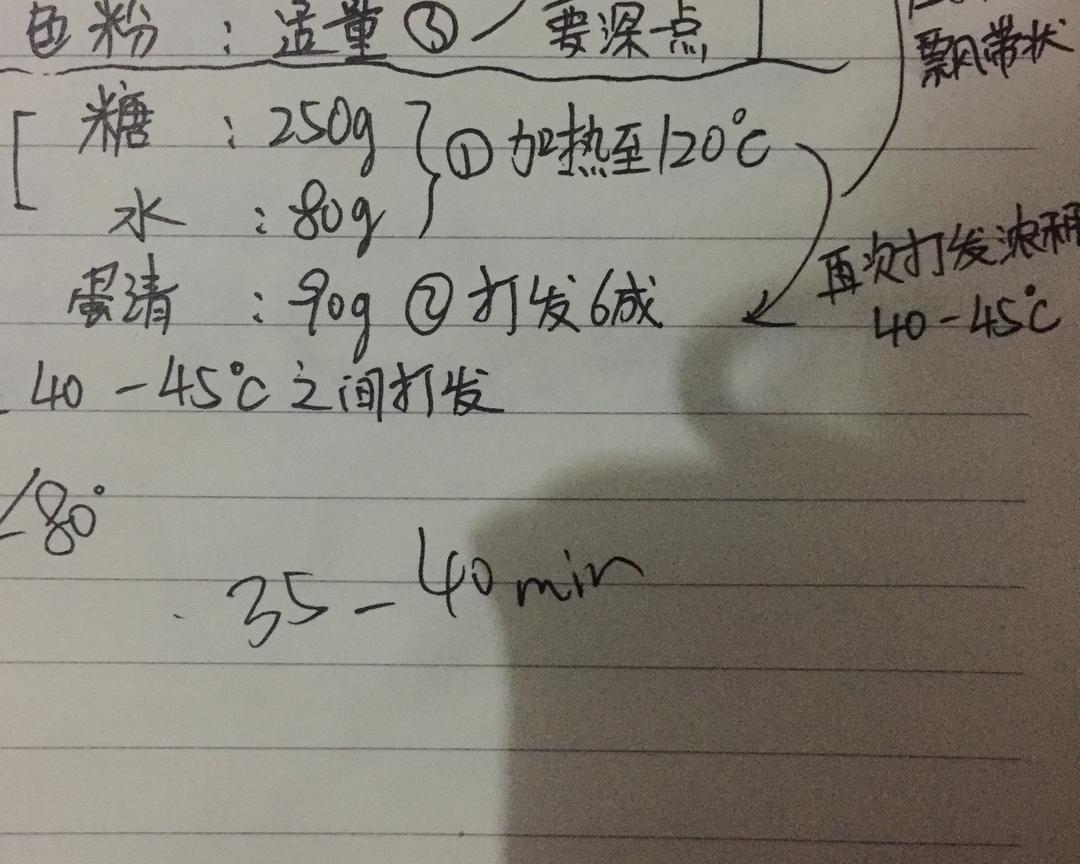 色粉：适量③／要深点
飘带状
糖：250g
水：80g
①加热至120℃
蛋清：90g ②打发6成
再次打发浓稠
40-45℃
40-45℃之间打发
80°
35-40min